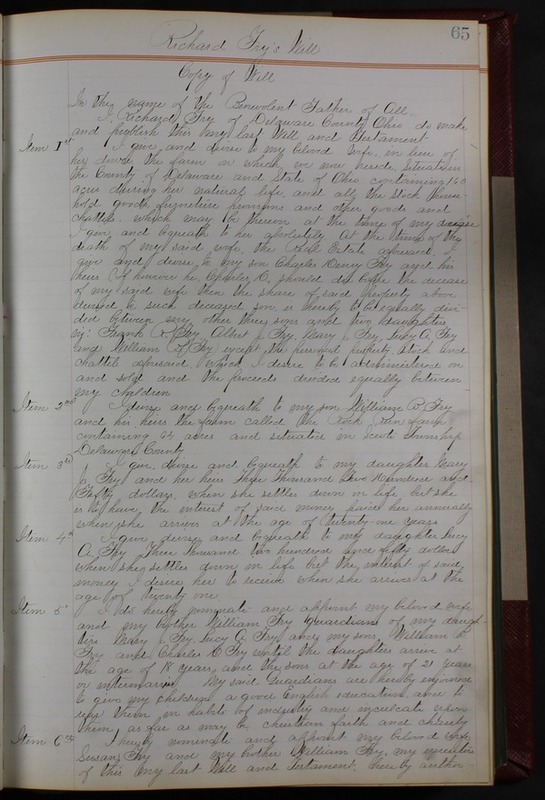 65
Richard Fry's Will
Copy of Will
In the name of the Benevolent Father of All.
I, Richard Fry of Delaware County Ohio do make
and publish this my last Will and Testament
Item 1st I give and devise to my beloved wife in lieu of
her dower the farm on which we now reside situate in
the County of Delaware and State of Ohio containing 160
acres during her natural life and all the stock house
hold goods furniture provisions and other goods and
chattels which may be thereon at the time of my decease
I give and bequeath to her absolutely At the time of the
death of my said wife, the Real Estate aforesaid, I
give and devise to my son Charles Henry Fry and his
heirs If however he, Charles H, should die before the decease
of my said wife then the share of said property above
devised to such deceased son is hereby to be equally divi-
ded between my other three sons and two daughters
viz: Frank Fry Albert Fry, Mary J. Fry, Lucy A. Fry
and William R. Fry except the personal property stock and
chattel aforesaid, which I desire to be administered on
and sold and the proceeds divided equally between
my children
Item 2nd I devise and bequeath to my son William R. Fry
and his heirs the farm called the Run farm
containing 64 acres and situated in Scioto Township
Delaware County
Item 3rd I give, devise and bequeath to my daughter Mary
J. Fry and her heirs Three Thousand Two Hundred and
Fifty dollars, when she settles down in life but she
is to have the interest of said money paid her annually
when she arrives at the age of twenty-one years
Item 4th I give, devise and bequeath to my daughter Lucy
A. Fry Three Thousand two hundred and fifty dollars
when she settles down in life but the interest of said
money I desire her to receive when she arrives at the
age of twenty one
Item 5th I do hereby nominate and appoint my beloved wife
and my brother William Fry guardians of my daugh-
ters Mary J. Fry, Lucy A. Fry and my sons, William R.
Fry and Charles H Fry until the daughters arrive at
the age of 18 years, and the sons at the age of 21 years
or intermarry My said Guardians are hereby enjoined
to give my children a good English education and to
rear them in habits of industry and inculcate upon
them as far as may be, christian faith and charity
Item 6th I hereby nominate and appoint my beloved wife,
Susan Fry and my brother William Fry, my executors
of this my last Will and Testament, hereby author-